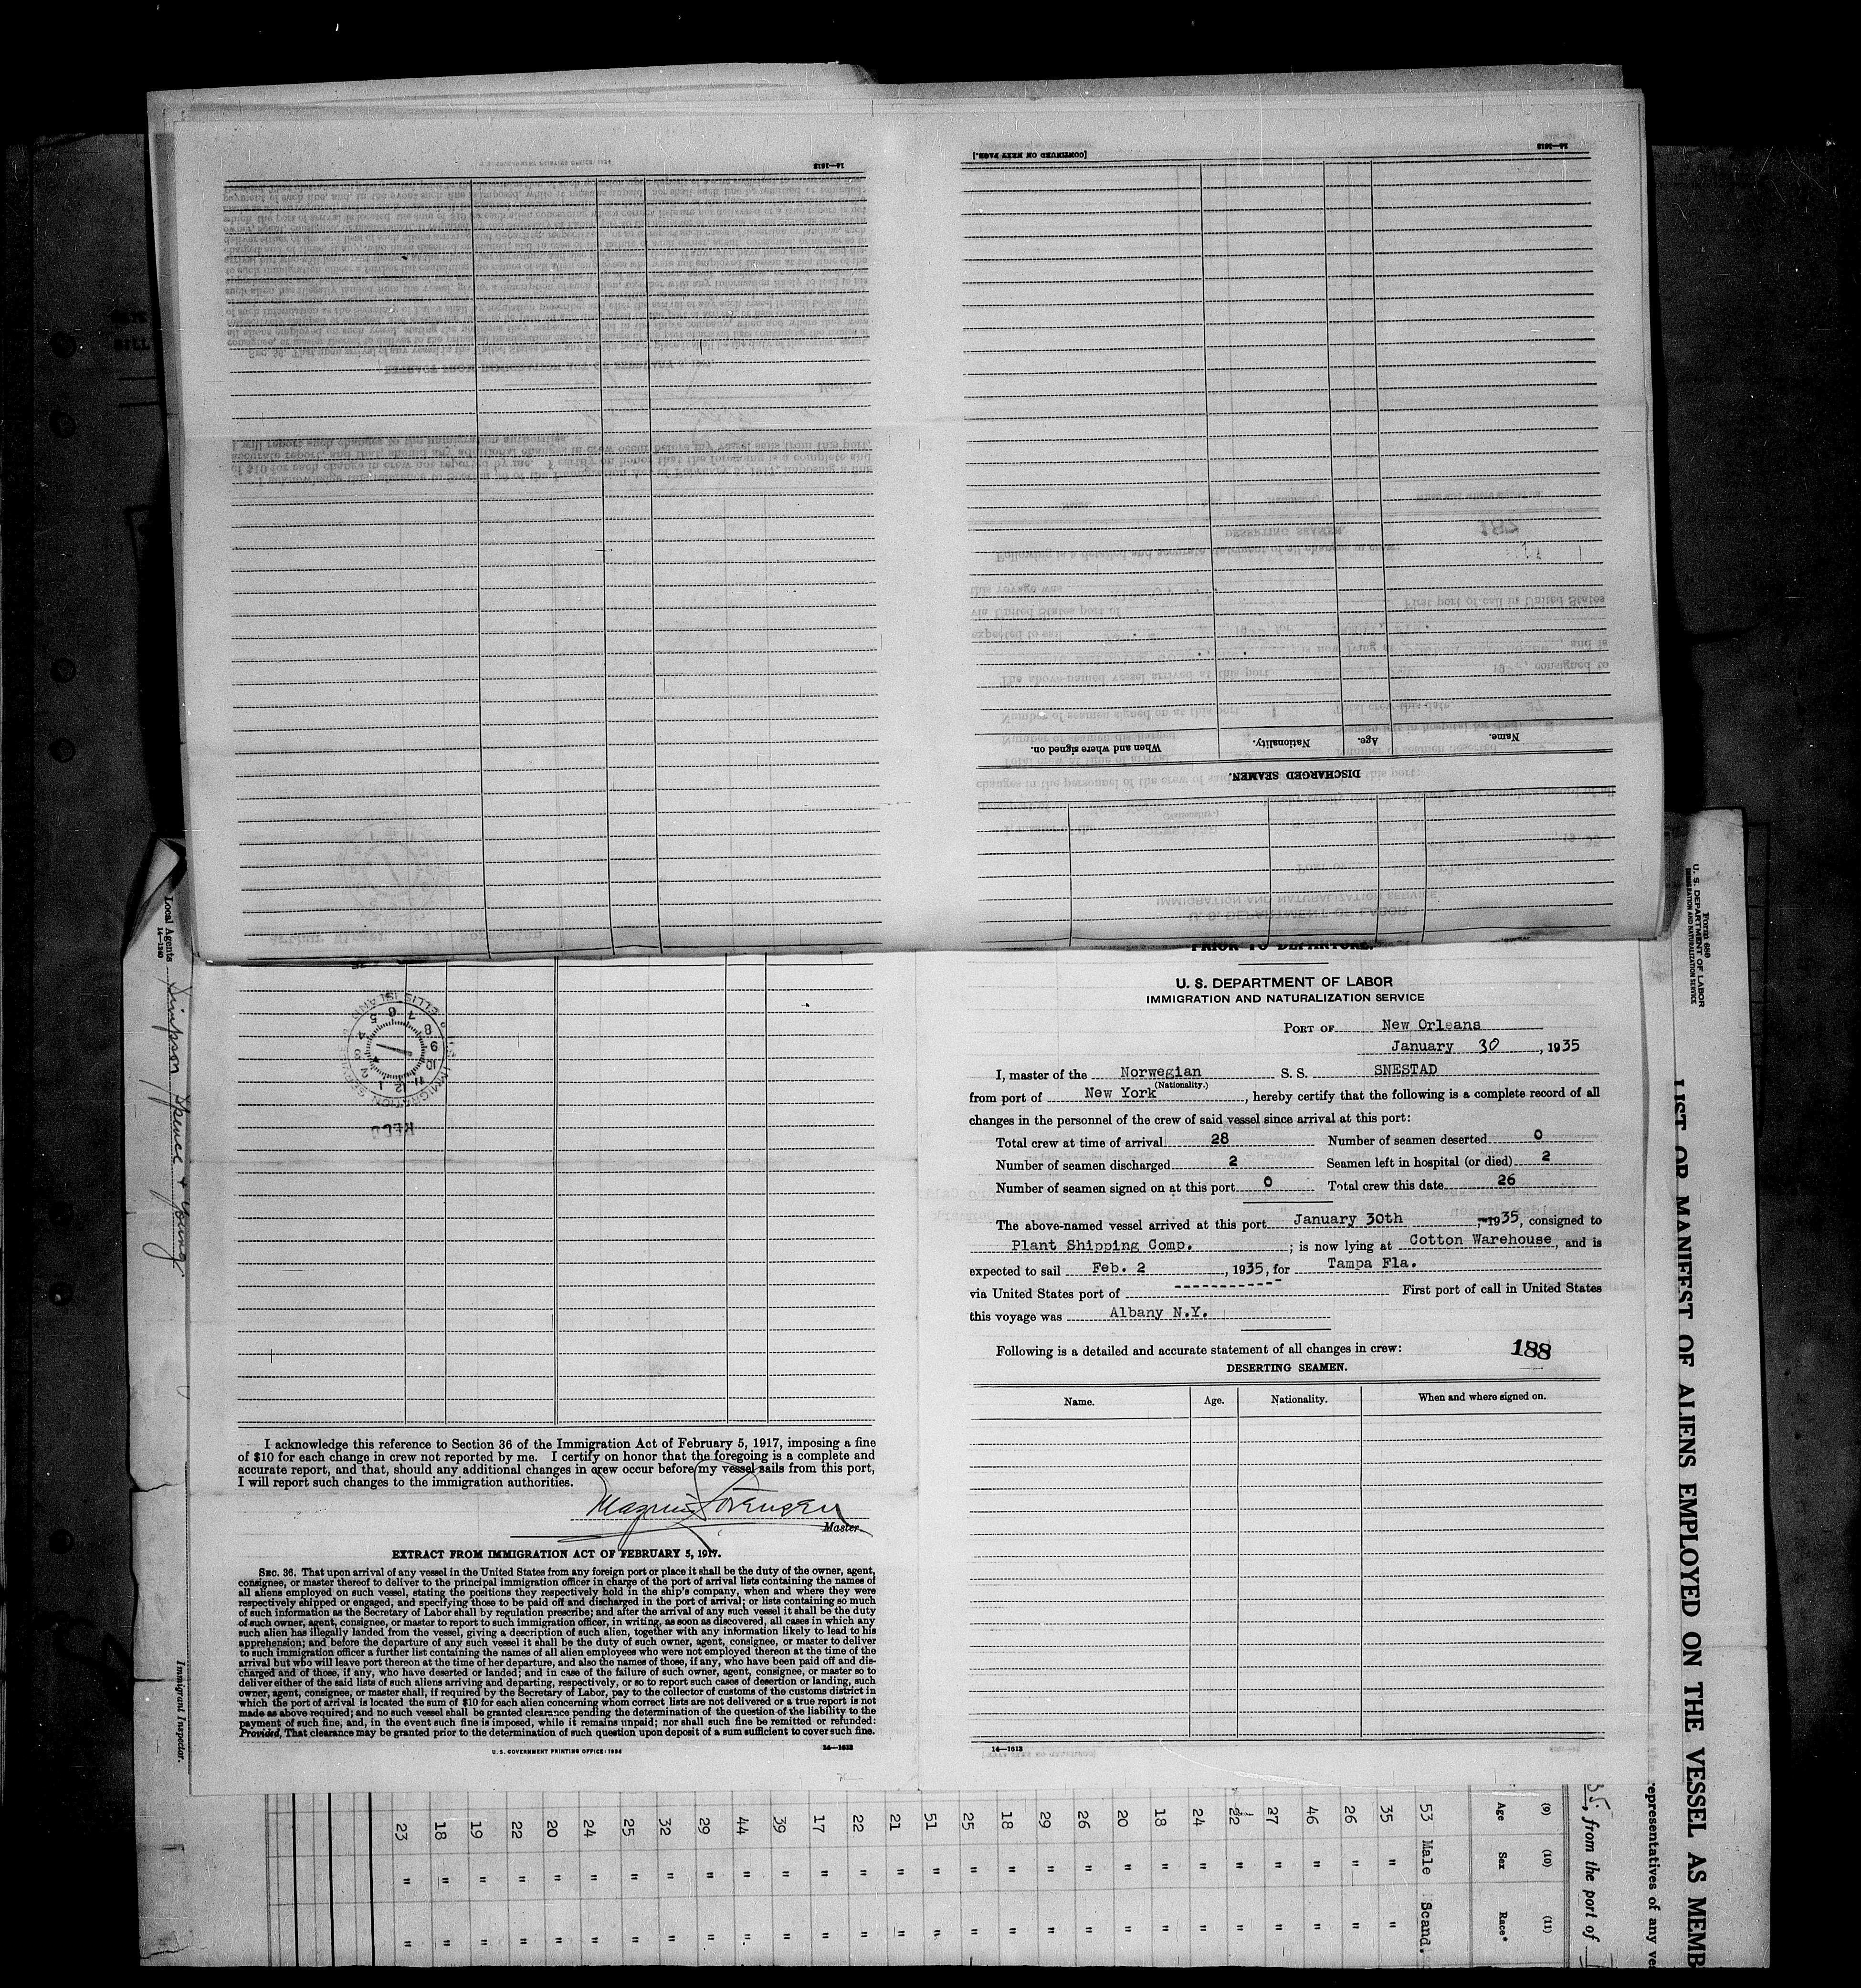 [CONTINUED ON NEXT PAGE.]
14—1613
14—1613
Name.
Age.
Nationality.
When and where signed on.
DISCHARGED SEAMEN.
PRIOR TO DEPARTURE.
U. S. DEPARTMENT OF LABOR
IMMIGRATION AND NATURALIZATION SERVICE
PORT OF New Orleans
January 30, 1935
I, master of the Norwegian S. S. SNESTAD
(Nationality.)
from port of New York, hereby certify that the following is a complete record of all
changes in the personnel of the crew of said vessel since arrival at this port:
Total crew at time of arrival 28 Number of seamen deserted 0
Number of seamen discharged 2 Seamen left in hospital (or died) 2
Number of seamen signed on at this port 0 Total crew this date 26
The above-named vessel arrived at this port January 30th, 1935, consigned to
Plant Shipping Comp.; is now lying at Cotton Warehouse, and is
expected to sail Feb. 2, 1935, for Tampa Fla.
via United States port of First port of call in United States
this voyage was Albany N.Y.
Following is a detailed and accurate statement of all changes in crew:
188
DESERTING SEAMEN.
Name. Age. Nationality. When and where signed on.
14—1613
U. S. IMMIGRATION SERVICE ELLIS ISLAND
1 2 3 4 5 6 7 8 9 10 11 12
RECD
I acknowledge this reference to Section 36 of the Immigration Act of February 5, 1917, imposing a fine
of $10 for each change in crew not reported by me. I certify on honor that the foregoing is a complete and
accurate report, and that, should any additional changes in crew occur before my vessel sails from this port,
I will report such changes to the immigration authorities.
Magnus Sörensen
Master.
EXTRACT FROM IMMIGRATION ACT OF FEBRUARY 5, 1917.
SEC. 36. That upon arrival of any vessel in the United States from any foreign port or place it shall be the duty of the owner, agent,
consignee, or master thereof to deliver to the principal immigration officer in charge of the port of arrival lists containing the names of
all aliens employed on such vessel, stating the positions they respectively hold in the ship's company, when and where they were
respectively shipped or engaged, and specifying those to be paid off and discharged in the port of arrival; or lists containing so much
of such information as the Secretary of Labor shall by regulation prescribe; and after the arrival of any such vessel it shall be the duty
of such owner, agent, consignee, or master to report to such immigration officer, in writing, as soon as discovered, all cases in which any
such alien has illegally landed from the vessel, giving a description of such alien, together with any information likely to lead to his
apprehension; and before the departure of any such vessel it shall be the duty of such owner, agent, consignee, or master to deliver
to such immigration officer a further list containing the names of all alien employees who were not employed thereon at the time of the
arrival but who will leave port thereon at the time of her departure, and also the names of those, if any, who have been paid off and dis-
charged and of those, if any, who have deserted or landed; and in case of the failure of such owner, agent, consignee, or master so to
deliver either of the said lists of such aliens arriving and departing, respectively, or so to report such cases of desertion or landing, such
owner, agent, consignee, or master shall, if required by the Secretary of Labor, pay to the collector of customs of the customs district in
which the port of arrival is located the sum of $10 for each alien concerning whom correct lists are not delivered or a true report is not
made as above required; and no such vessel shall be granted clearance pending the determination of the question of the liability to the
payment of such fine, and, in the event such fine is imposed, while it remains unpaid; nor shall such fine be remitted or refunded:
Provided, That clearance may be granted prior to the determination of such question upon deposit of a sum sufficient to cover such fine.
U. S. GOVERNMENT PRINTING OFFICE: 1934
14—1613
Local Agents Simpson Spence & Young
14—1240
Immigrant Inspector.
Form 680
U. S. DEPARTMENT OF LABOR
IMMIGRATION AND NATURALIZATION SERVICE
LIST OR MANIFEST OF ALIENS EMPLOYED ON THE VESSEL AS MEMB
epresentatives of any ve
35, from the port of
(9) (10) (11)
Age Sex Race*
53 Male Scand.
35 " "
26 " "
46 " "
27 " "
22 " "
24 " "
18 " "
20 " "
26 " "
29 " "
18 " "
25 " "
51 " "
21 " "
22 " "
17 " "
39 " "
44 " "
29 " "
32 " "
25 " "
24 " "
20 " "
22 " "
19 " "
18 " "
23 " "